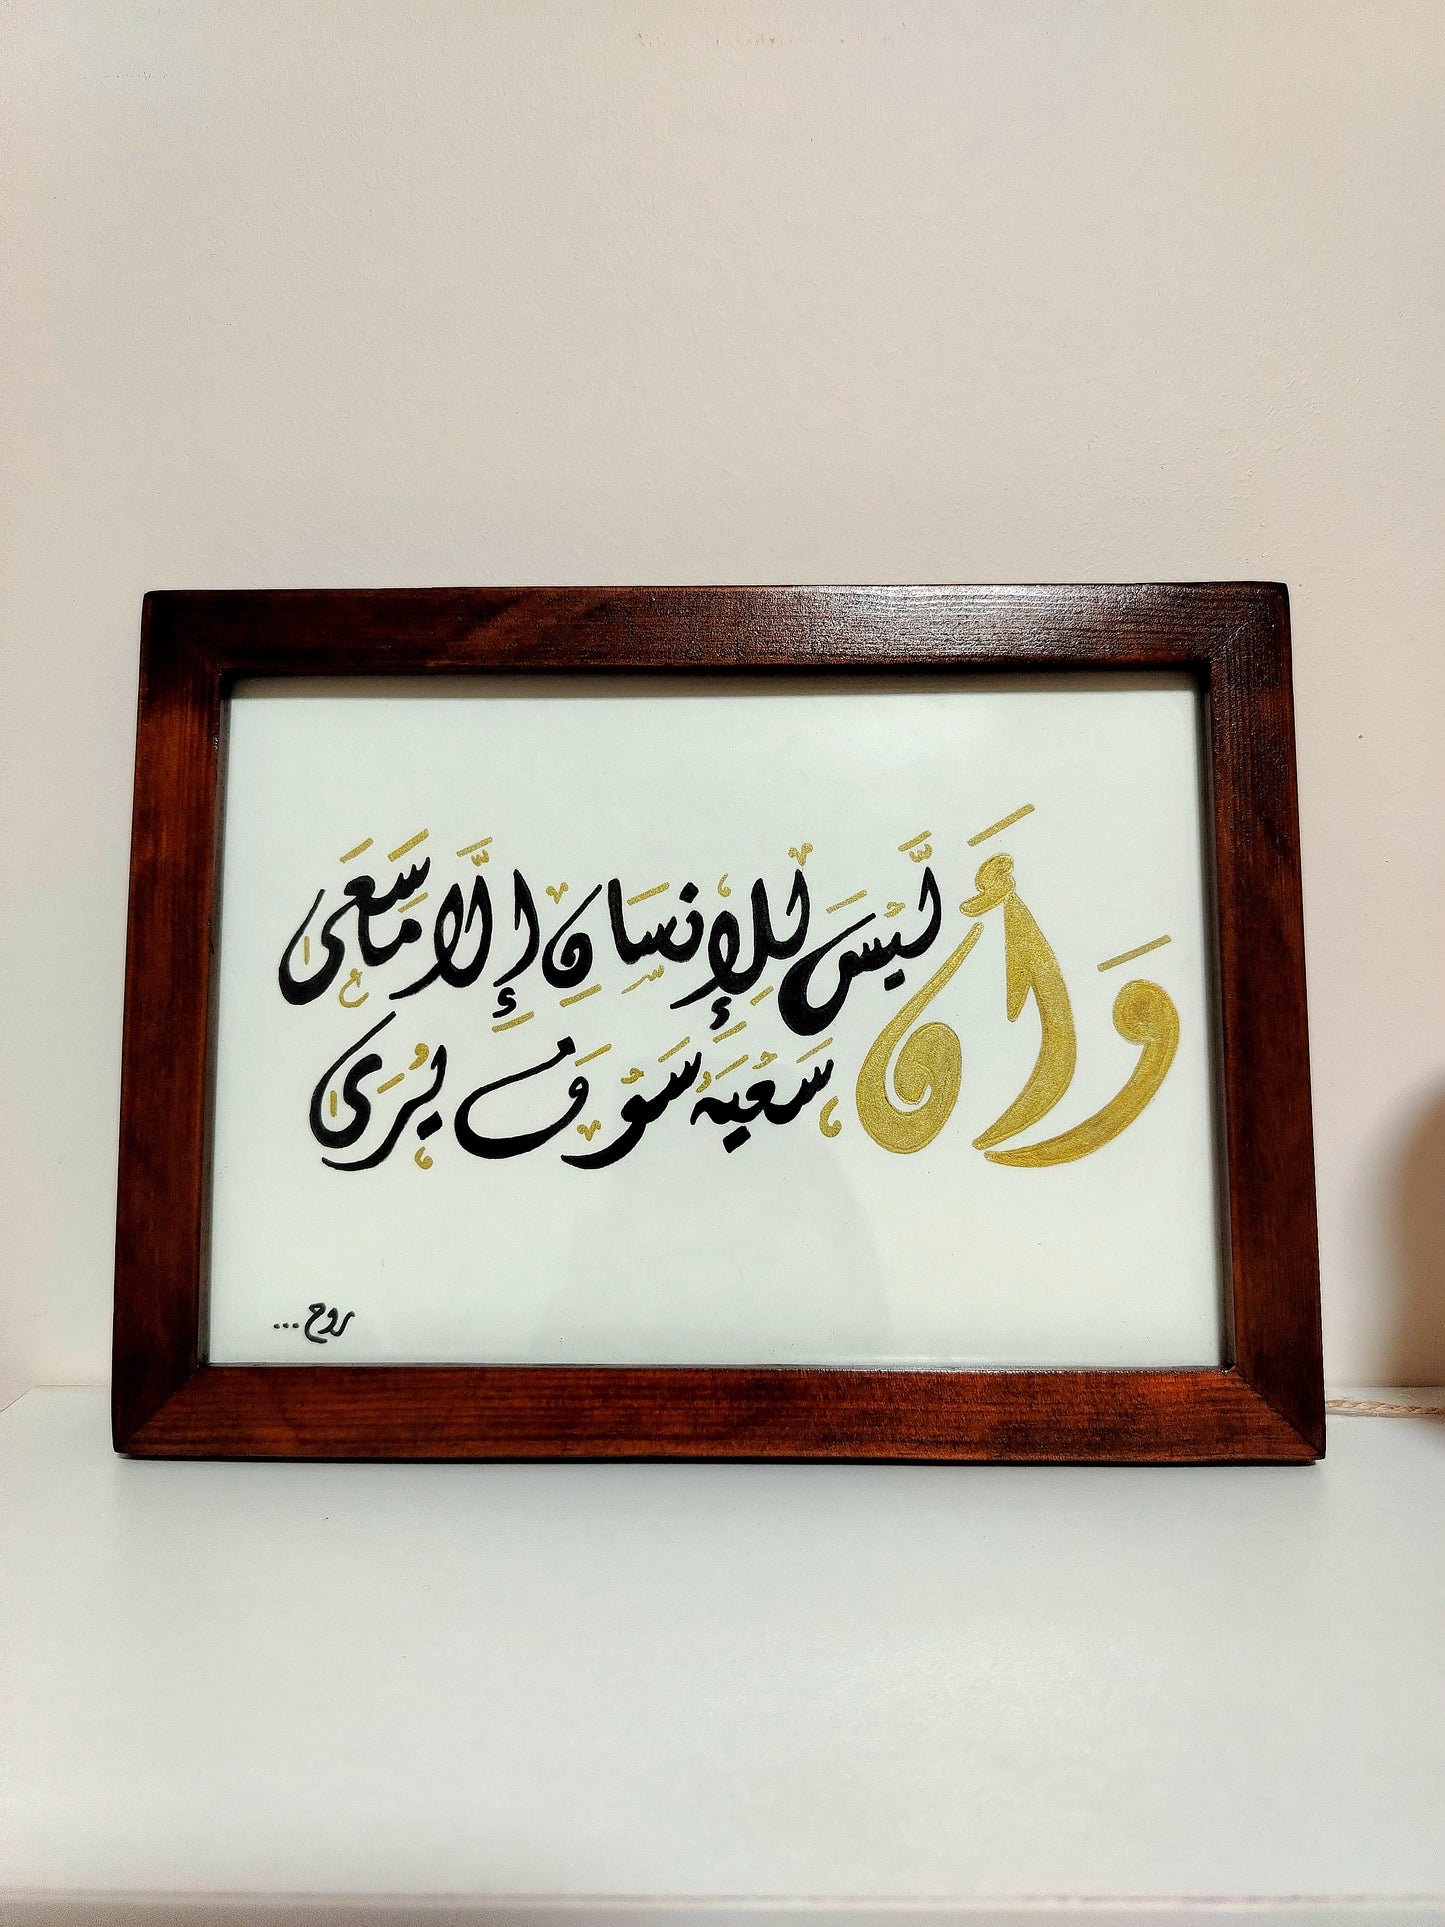 وَأَن لَّيْسَ لِلْإِنسَانِ إِلَّا مَا سَعَىٰ
سَعْيَهُ سَوْفَ يُرَىٰ
روح...